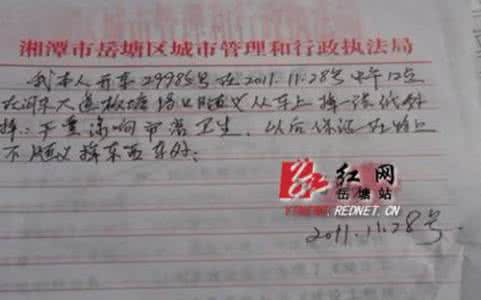 湘潭市岳塘区城市管理和行政执法局
我本人开车29985号在2011.11.28号中午12点
在河东大道板塘路口随义从车上掉一张纸
掉:严重影响市容卫生,以后保证在路上
不随义掉东西车外:
红网
岳塘站
YTNEWS.REDNET.CN
2011.11.28号.